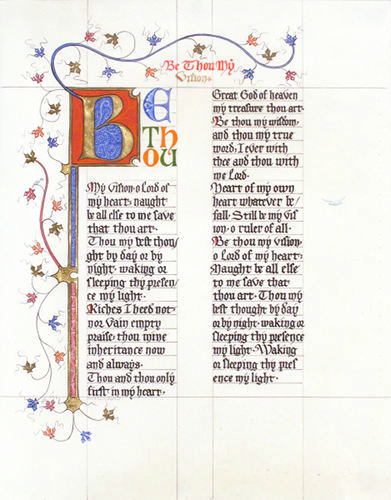 Be Thou My
Vision
BE
Tho
ou
My vision o Lord of
my heart, naught
be all else to me save
that thou art.
Thou my best thou/
ght by day or by
night, waking or
sleeping thy presen/
ce my light.
Riches I need not
nor vain empty
praise, thou mine
inheritance now
and always.
Thou and thou only
first in my heart.
Great God of heaven
my treasure thou art.
Be thou my wisdom,
and thou my true
word, I ever with
thee and thou with
me Lord.
Heart of my own
heart whatever be/
fall. Still be my vis
ion, o ruler of all.
Be thou my vision,
o Lord of my heart.
Naught be all else
to me save that
thou art. Thou my
best thought by day
or by night, waking or
sleeping thy presence
my light. Waking
or sleeping thy pres
ence my light.